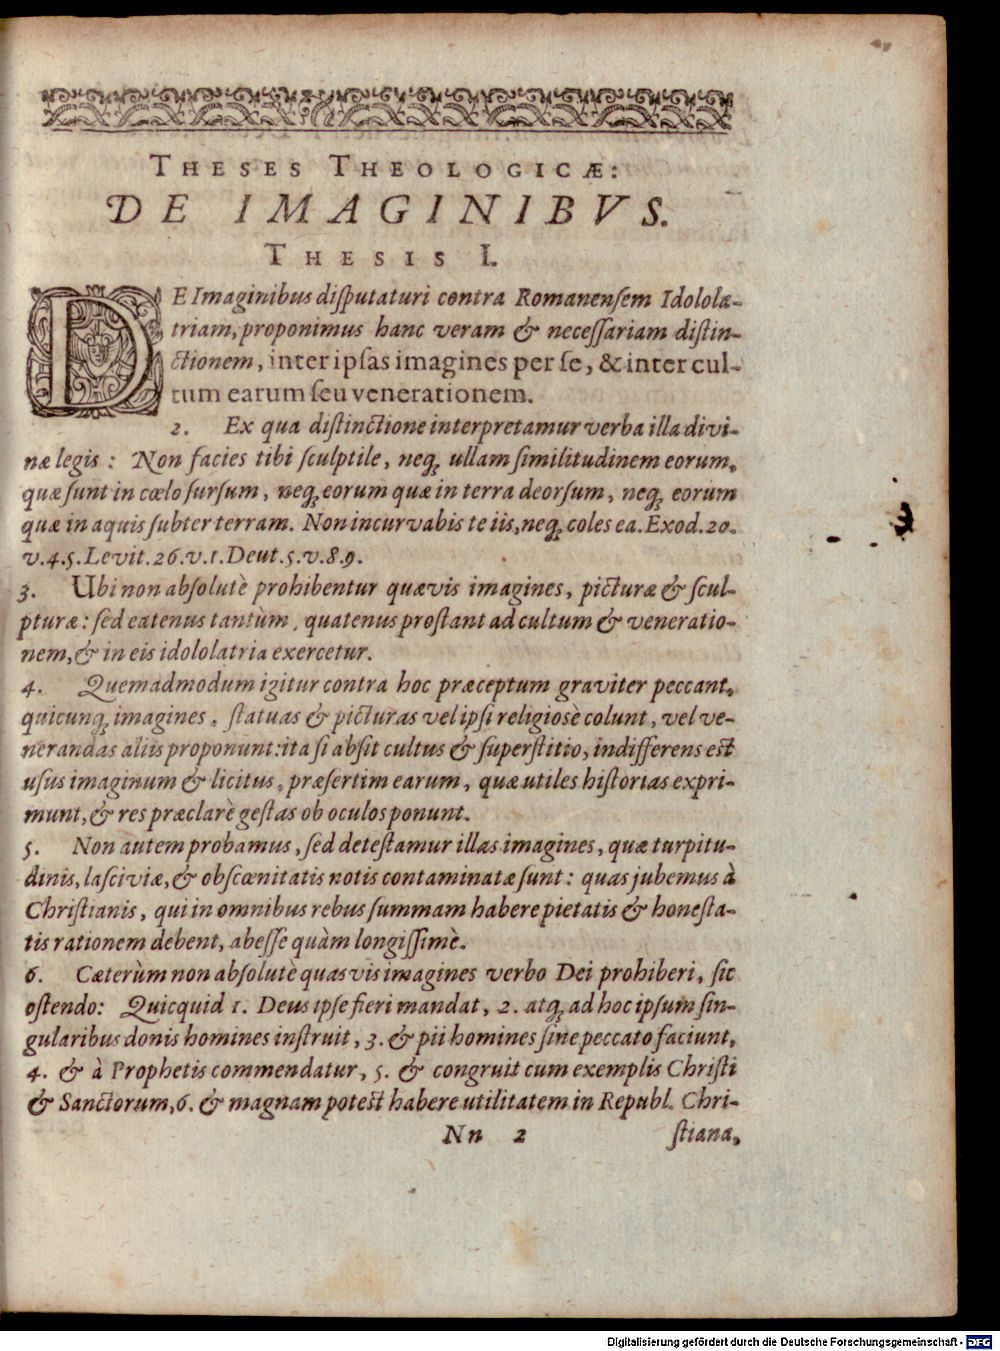 THESES THEOLOGICÆ:
DE IMAGINIBVS.
THESIS I.
DE Imaginibus disputaturi contra Romanensem Idololæ-
triam, proponimus hanc veram & necessariam distin-
ctionem, inter ipsas imagines per se, & inter cul-
tum earum seu venerationem.
2. Ex qua distinctione interpretamur verba illa divi-
næ legis: Non facies tibi sculptile, neq; ullam similitudinem eorum,
quæ sunt in cœlo sursum, neq; eorum quæ in terra deorsum, neq; eorum
quæ in aquis subter terram. Non incurvabis te iis, neq; coles ea. Exod. 20.
v. 4. 5. Levit. 26. v. 1. Deut. 5. v. 8. 9.
3. Ubi non absolutè prohibentur quævis imagines, picturæ & scul-
pturæ: sed eatenus tantùm, quatenus prostant ad cultum & veneratio-
nem, & in eis idololatria exercetur.
4. Quemadmodum igitur contra hoc præceptum graviter peccant,
quicunq; imagines, statuas & picturas vel ipsi religiosè colunt, vel ve-
nerandas aliis proponunt: ita si absit cultus & superstitio, indifferens est
usus imaginum & licitus, præsertim earum, quæ utiles historias expri-
munt, & res præclarè gestas ob oculos ponunt.
5. Non autem probamus, sed detestamur illas imagines, quæ turpitu-
dinis, lasciviæ, & obscœnitatis notis contaminatæ sunt: quas jubemus à
Christianis, qui in omnibus rebus summam habere pietatis & honesta-
tis rationem debent, abesse quàm longissimè.
6. Cæterùm non absolutè quasvis imagines verbo Dei prohiberi, sic
ostendo: Quicquid 1. Deus ipse fieri mandat, 2. atq; ad hoc ipsum sin-
gularibus donis homines instruit, 3. & pii homines sine peccato faciunt,
4. & à Prophetis commendatur, 5. & congruit cum exemplis Christi
& Sanctorum, 6. & magnam potest habere utilitatem in Republ. Chri-
Nn 2 stiana,
Digitalisierung gefördert durch die Deutsche Forschungsgemeinschaft - DFG